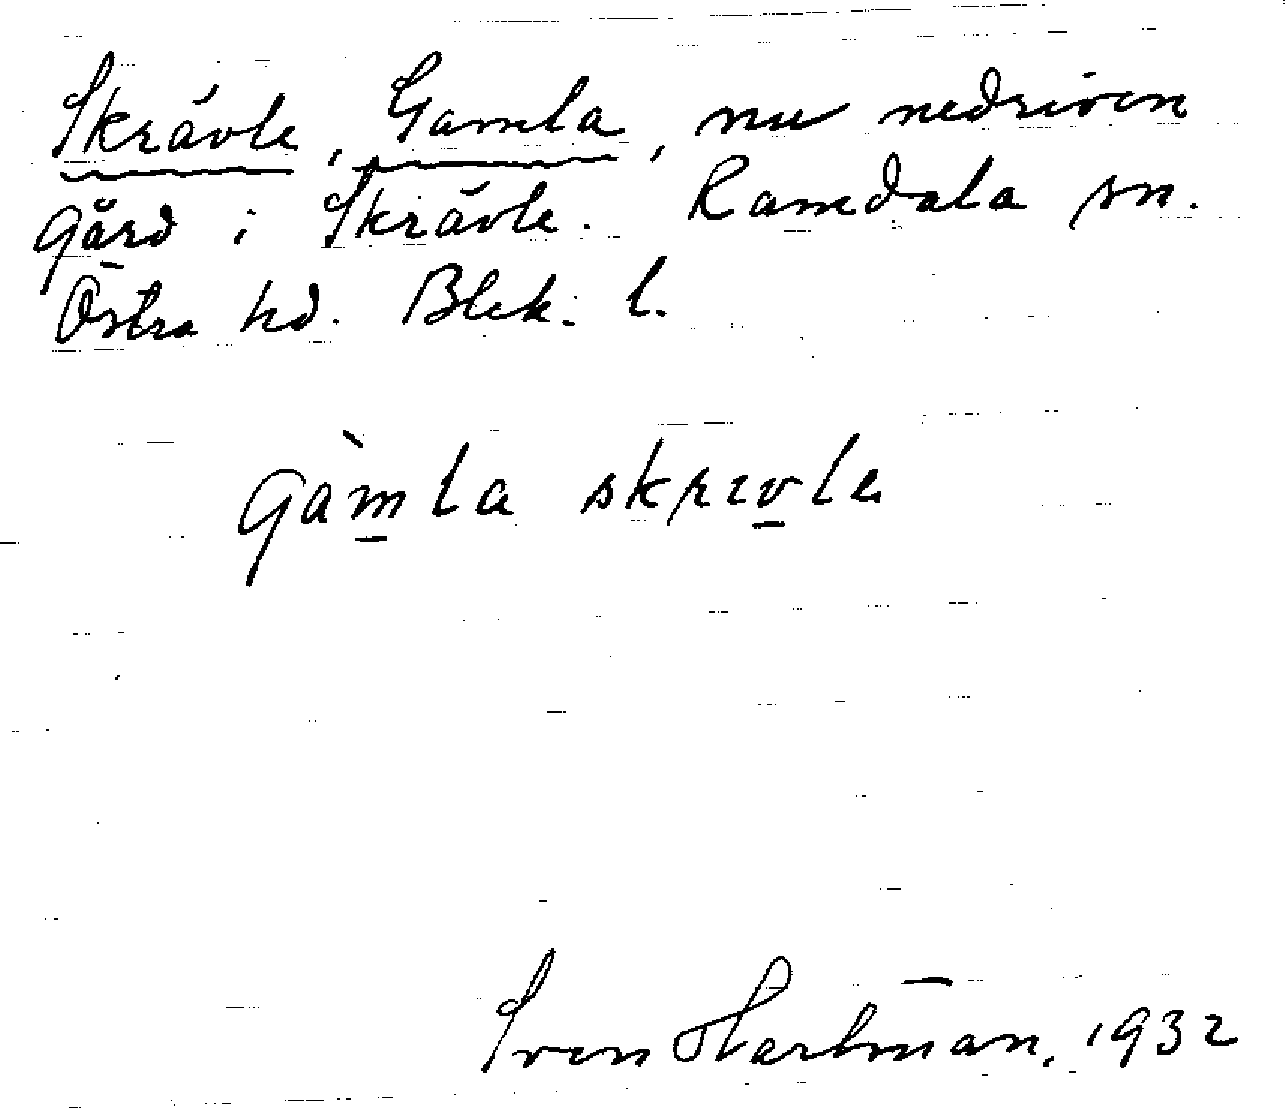 Skrävle, Gamla, nu nedriven
gård i Skrävle. Ramdala sn.
Östra hd. Blek. l.
gàmla skrɪvle
Sven Hartman, 1932